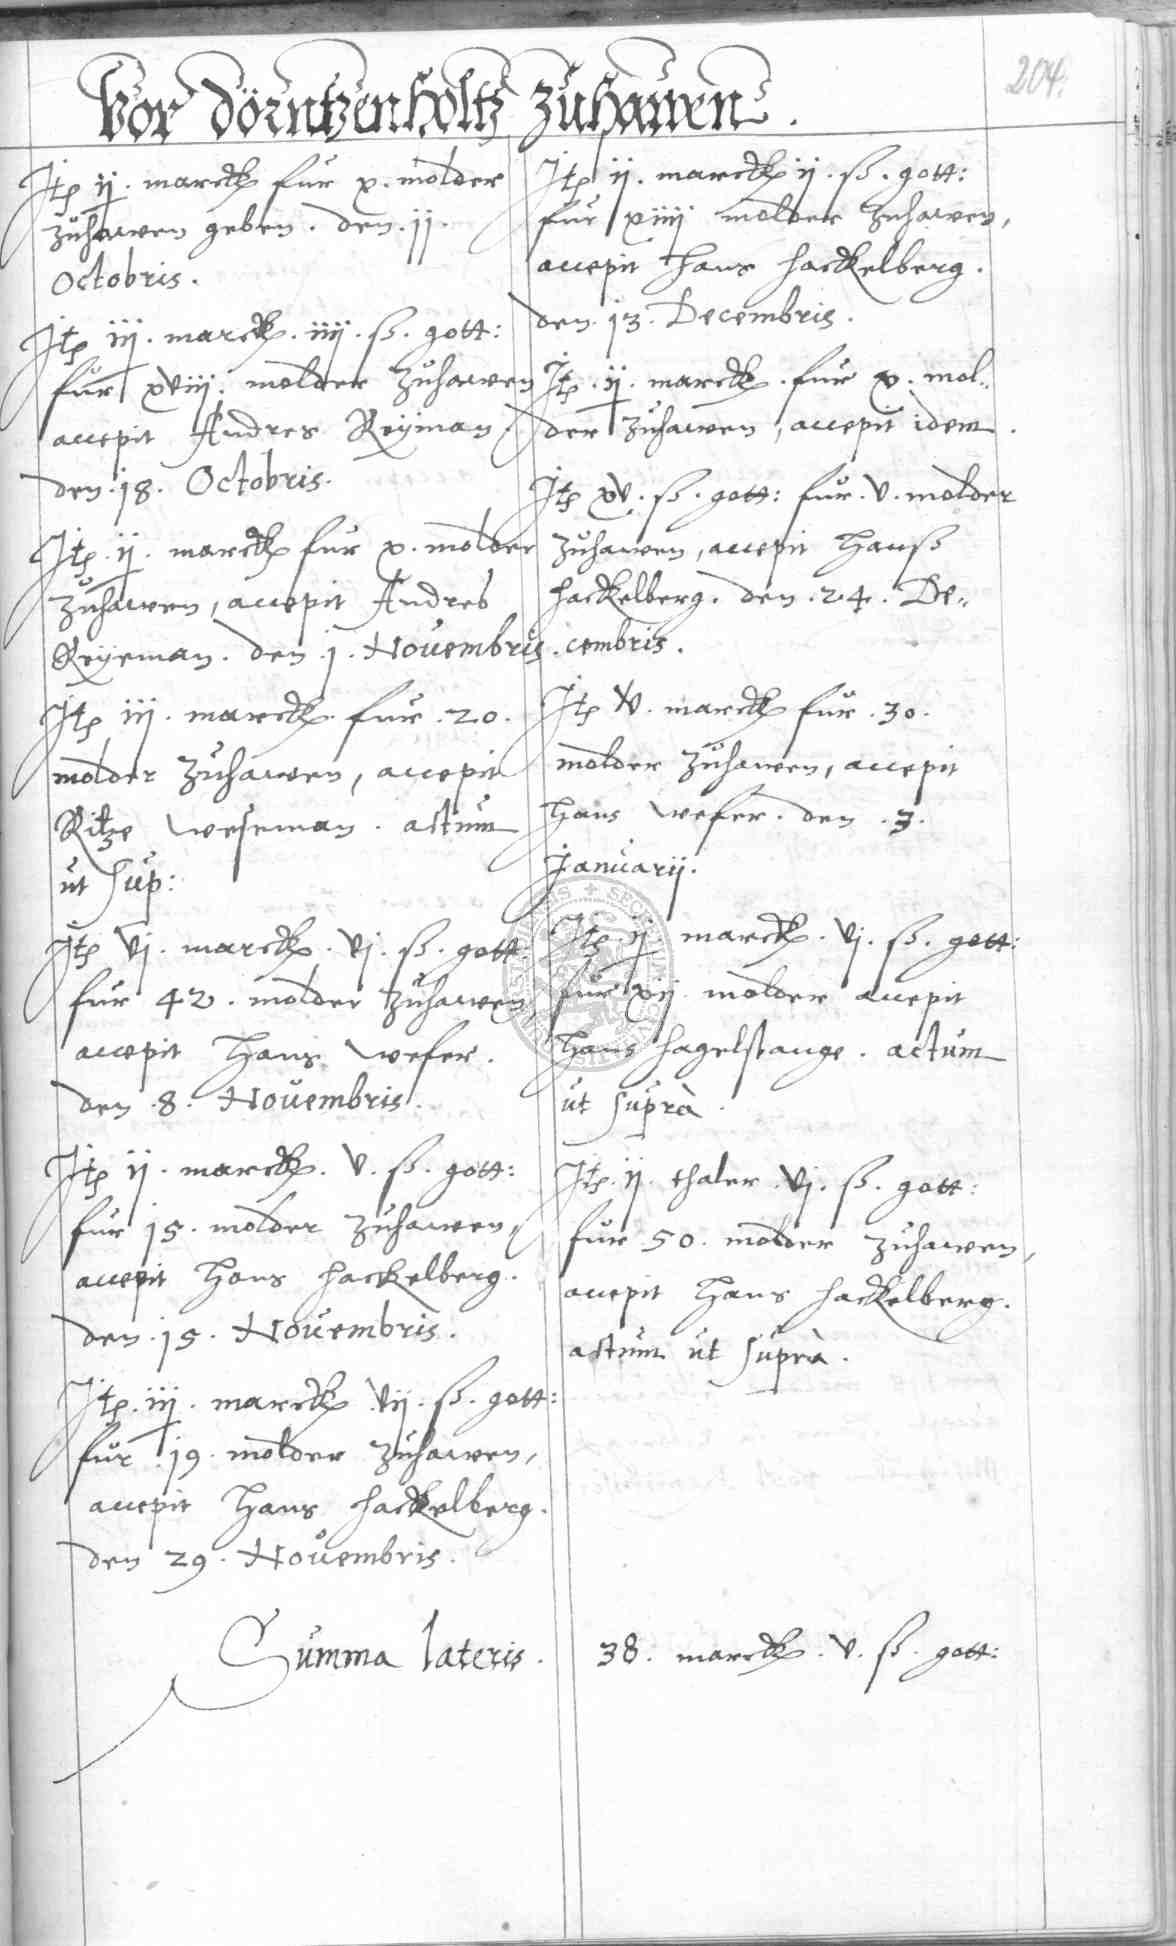 204.
Vor dörntzenholtz zuhawen.
Itē ij. marck fur x. molder
zuhawen geben. den. 11.
Octobris.
Itē iij. marck. iiij. ß. gott:
fur xviij. molder zuhawen
accepit Andres Reyman
den. 18. Octobris.
Itē. ij. marck fur x. molder
zuhawen, accepit Andres
Reyeman. den. 1. Novembris.
Itē iij. marck. fur. 20.
molder zuhawen, accepit
Ritze Weseman. actum
ut sup:
Itē vj. marck. vj. ß. gott:
fur 42. molder zuhawen
accepit Hans Wefer.
den. 8. Novembris.
Itē ij. marck. v. ß. gott:
fur 15. molder zuhawen,
accepit Hans Hackelberg.
den. 15. Novembris.
Itē. iij. marck vij. ß. gott:
fur 19. molder zuhawen,
accepit Hans Hackelberg.
den 29. Novembris.
Itē ij. marck ij. ß. gott:
fur xiiij molder zuhawen,
accepit Hans Hackelberg.
den. 13. Decembris.
Itē. ij. marck. fur x. mol„
der zuhawen, accepit idem.
Itē xv. ß. gott: fur. v. molder
zuhawen, accepit Hanß
Hackelberg. den. 24. De„
cembris.
Itē v. marck fur. 30.
molder zuhawen, accepit
Hans Wefer. den. 3.
Januarij.
Itē. ij. marck. vj. ß. gott:
fur xij molder accepit
Hans Hagelstange. actum
ut suprà.
Itē. ij. thaler. vj. ß. gott:
fur 50. molder zuhawen,
accepit Hans Hackelberg.
actum ut suprà.
Summa lateris. 38. marck. v. ß. gott: